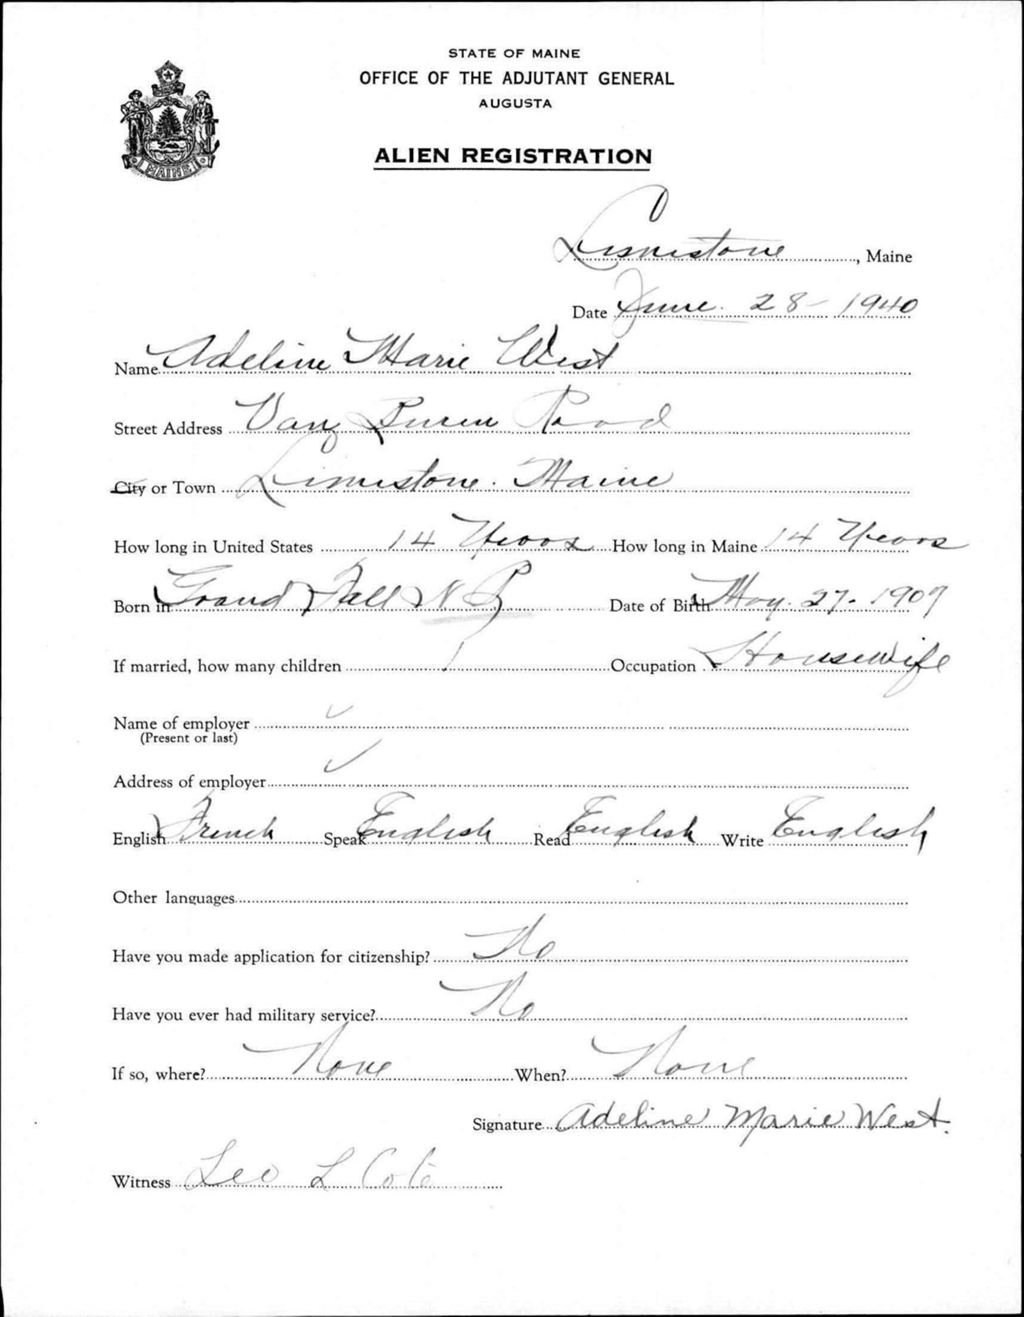 STATE OF MAINE
OFFICE OF THE ADJUTANT GENERAL
AUGUSTA
ALIEN REGISTRATION
MAINE
Limestone, Maine
Date June 28 - 1940
Name Adeline Marie West
Street Address Van Buren Road
City or Town Limestone. Maine
How long in United States 14 Years How long in Maine 14 Years
Born in Grand Fall N B Date of Birth May. 27. 1907
If married, how many children 1 Occupation Housewife
Name of employer ✓
(Present or last)
Address of employer ✓
English French Speak English Read English Write English
Other languages
Have you made application for citizenship? No
Have you ever had military service? No
If so, where? None When? None
Signature Adeline Marie West.
Witness Leo L Cote